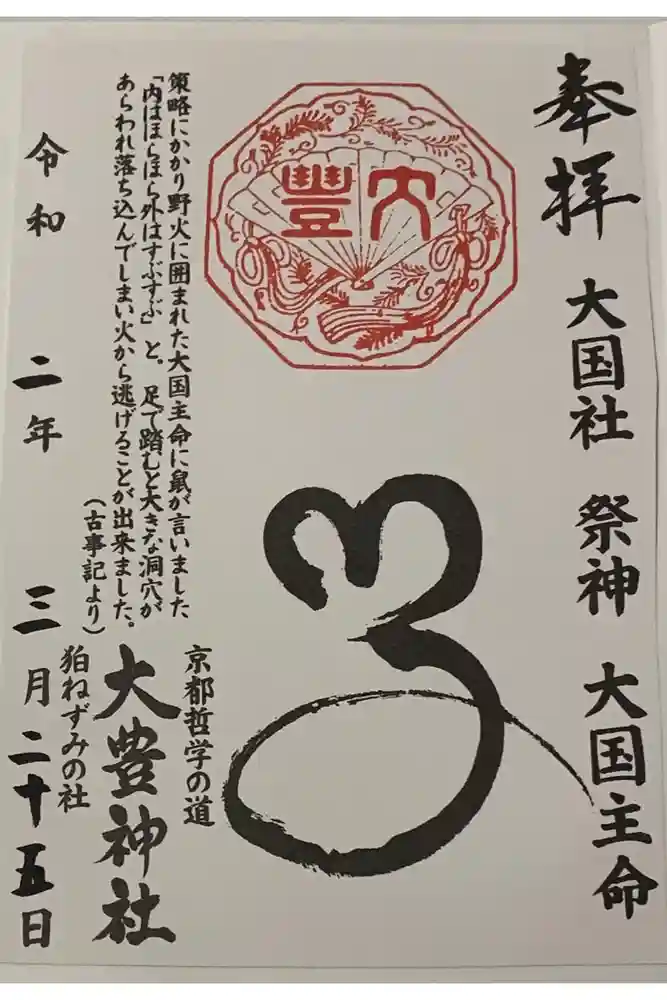 奉拝
大国社 祭神 大国主命
大豐
子
策略にかかり野火に囲まれた大国主命に鼠が言いました
「内はほらほら外はすぶすぶ」と。足で踏むと大きな洞穴が
あらわれ落ち込んでしまい火から逃げることが出来ました。
（古事記より）
京都哲学の道
大豊神社
狛ねずみの社
令和 二年 三月二十五日